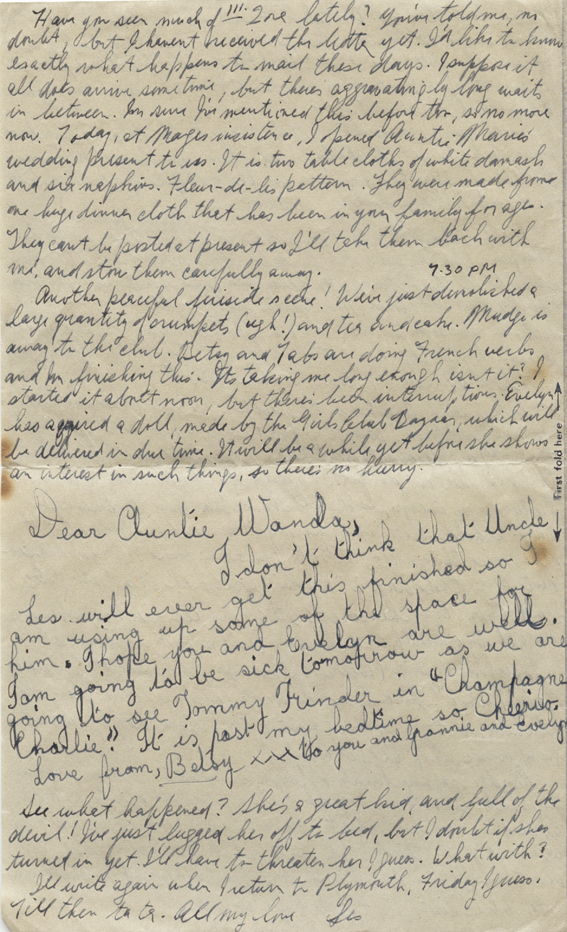 Have you seen much of III. Zoe lately? You've told me, no
doubt, but I havent received the letter yet. I'd like to know
exactly what happens to mail these days. I suppose it
all does arrive sometime, but theres aggravatingly long waits
in between. I'm sure I've mentioned this before tho, so no more
now. Today, at Madges insistence, I opened Auntie Marie's
wedding present to us. It is two table cloths of white damask
and six napkins. Fleur-de-lis pattern. They were made from
one huge dinner cloth that has been in your family for ages.
They cant be posted at present so I'll take them back with
me, and stow them carefully away.
7-30 PM
Another peaceful fireside scene! We've just demolished a
large quantity of crumpets (ugh!) and tea and cake. Mudge is
away to the club. Betsy and Tabs are doing French verbs
and I'm finishing this. Its taking me long enough isnt it? I
started it about noon, but there's been interruptions. Evelyn
has acquired a doll, made by the Girls Club Bazaar, which will
be delivered in due time. It will be a while yet before she shows
an interest in such things, so there's no hurry.
First fold here
Dear Auntie Wanda,
I don't think that Uncle
Les will ever get this finished so I
am using up some of the space for
him. I hope you and Evelyn are well.
I am going to be sick tomorrow as we are
going to see Tommy Trinder in "Champagne
Charlie." It is past my bedtime so Cheerio.
Love from, Betsy xxx to you and grannie and Evelyn
See what happened? She's a great kid, and full of the
devil! I've just lugged her off to bed, but I doubt if shes
turned in yet. I'll have to threaten her I guess. What with?
I'll write again when I return to Plymouth, Friday I guess.
Till then ta ta. All my love Les